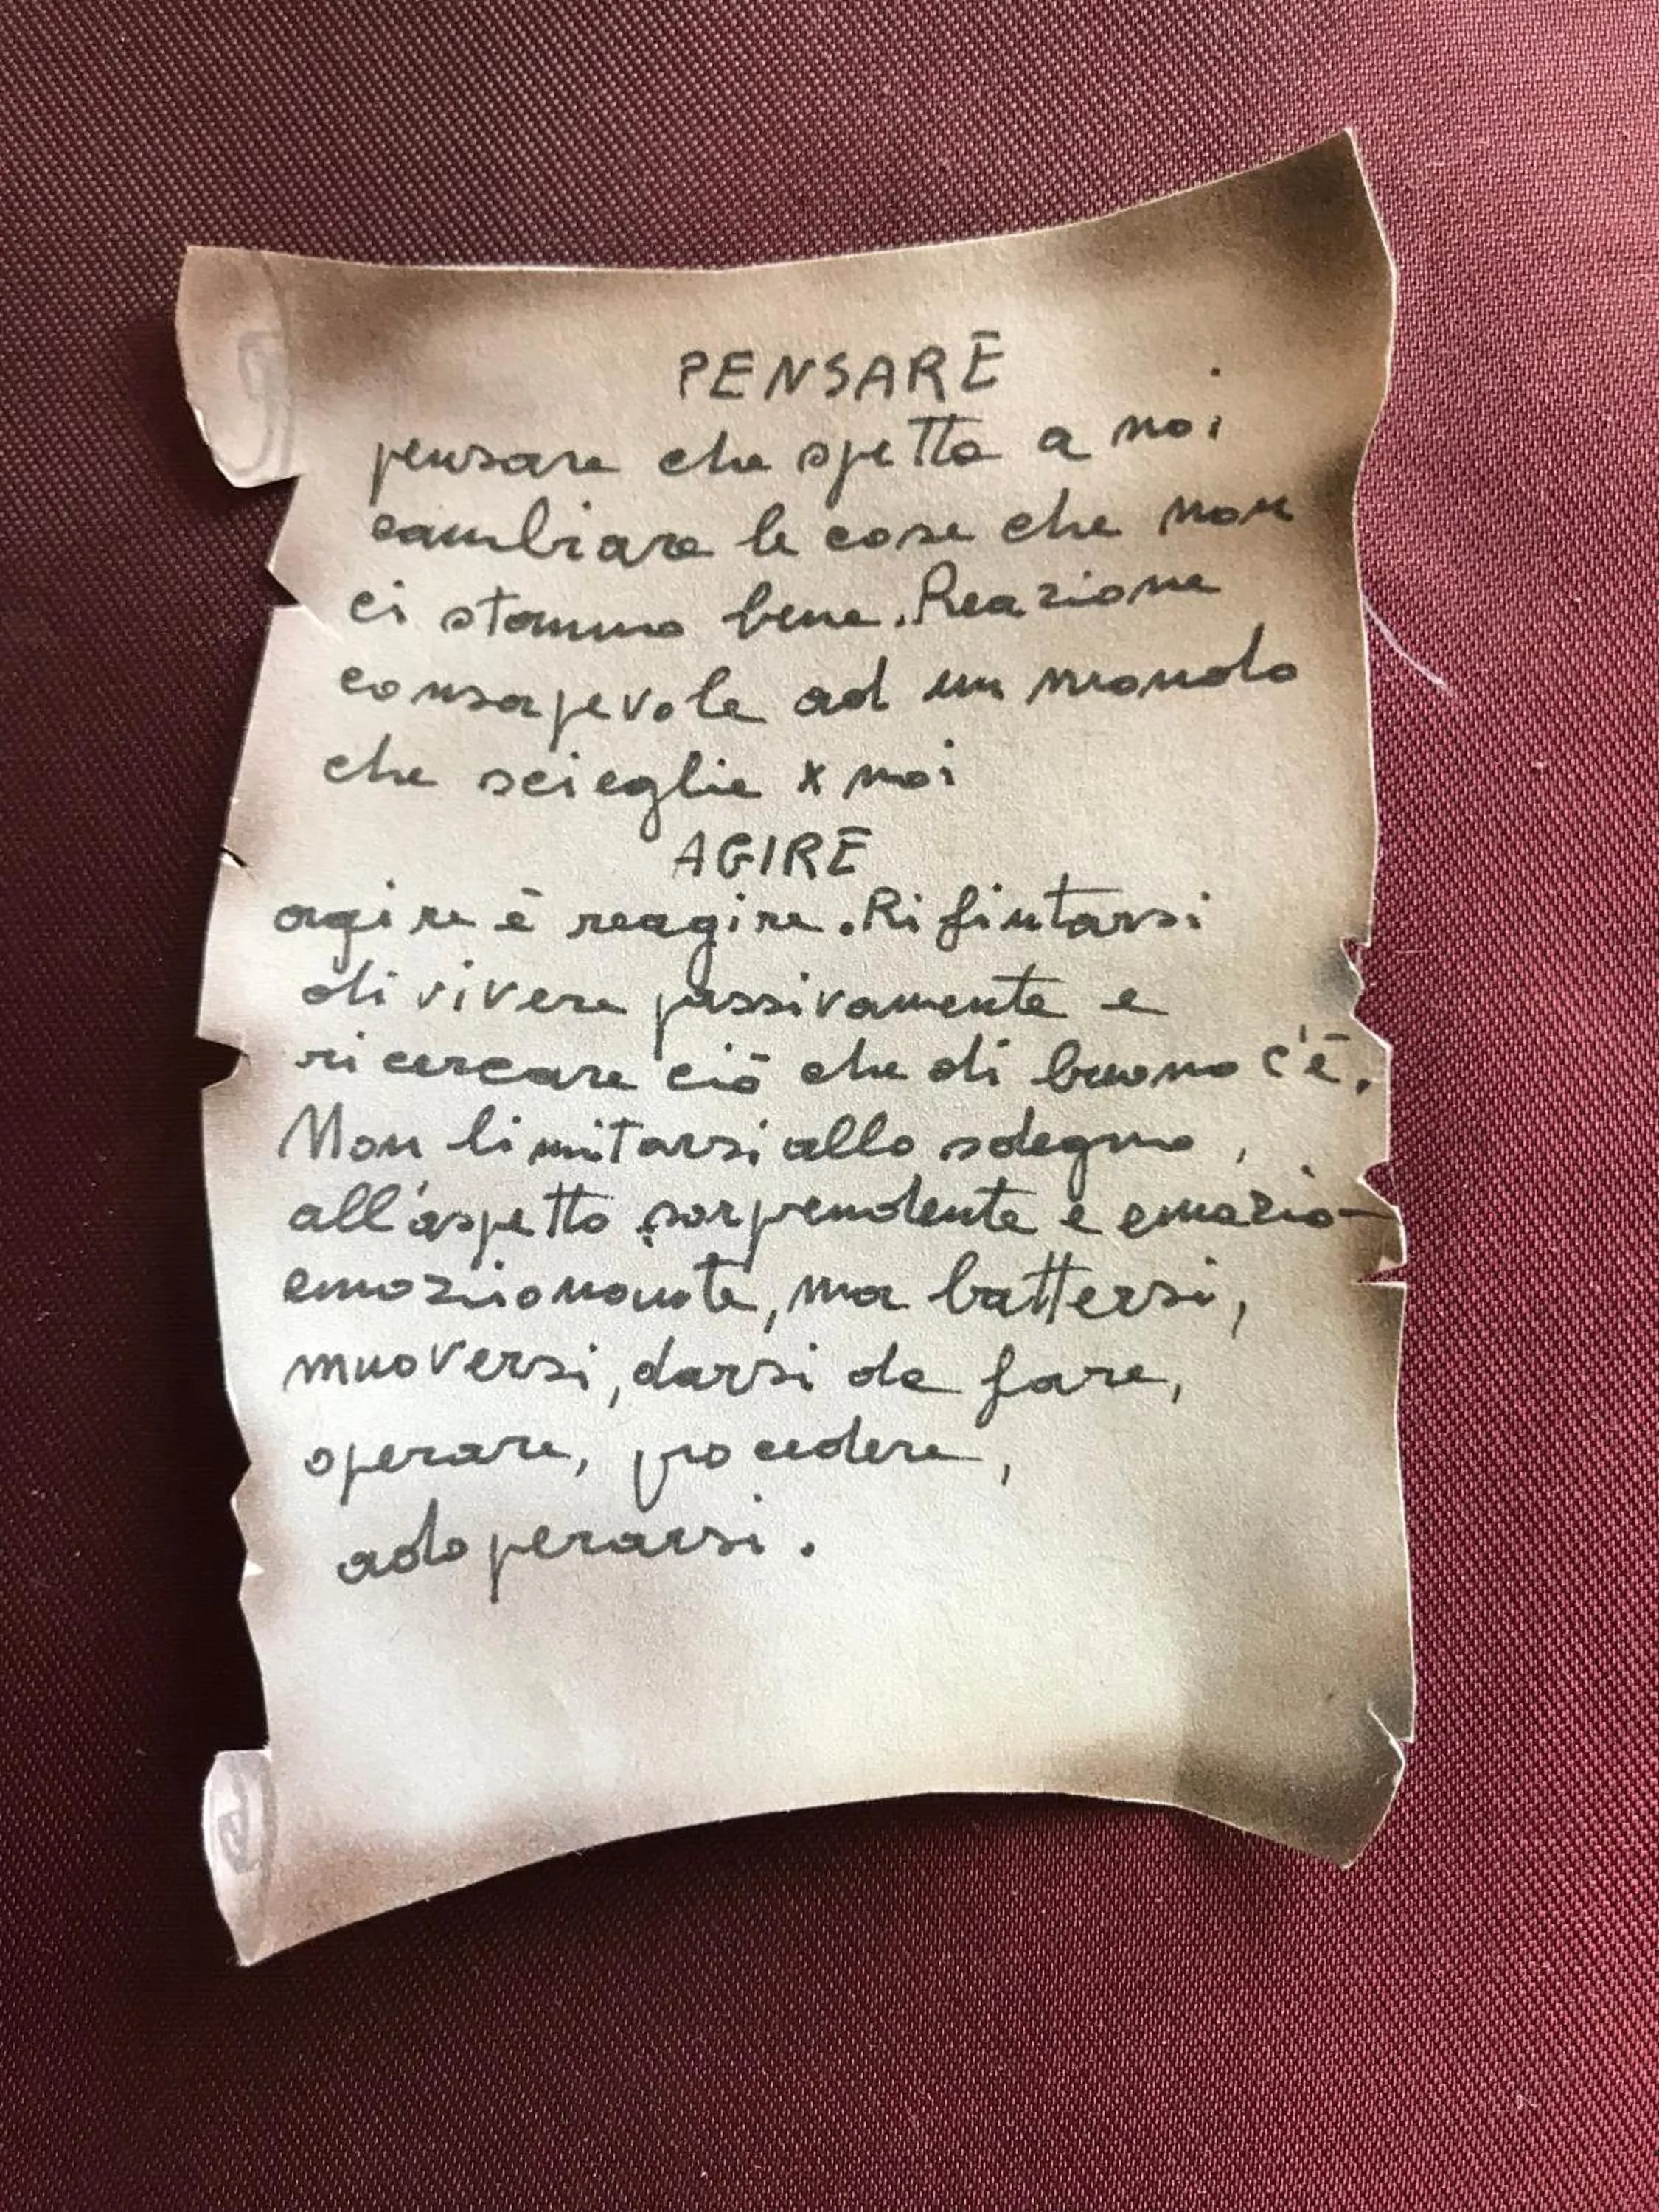 PENSARE
pensare che spetta a noi
cambiare le cose che non
ci stanno bene. Reazione
consapevole ad un mondo
che scieglie x noi
AGIRE
agire è reagire. Rifiutarsi
di vivere passivamente e
ricercare ciò che di buono c'è.
Non limitarsi allo sdegno,
all'aspetto sorprendente e emozio-
emozionante, ma battersi,
muoversi, darsi da fare,
operare, procedere,
adoperarsi.